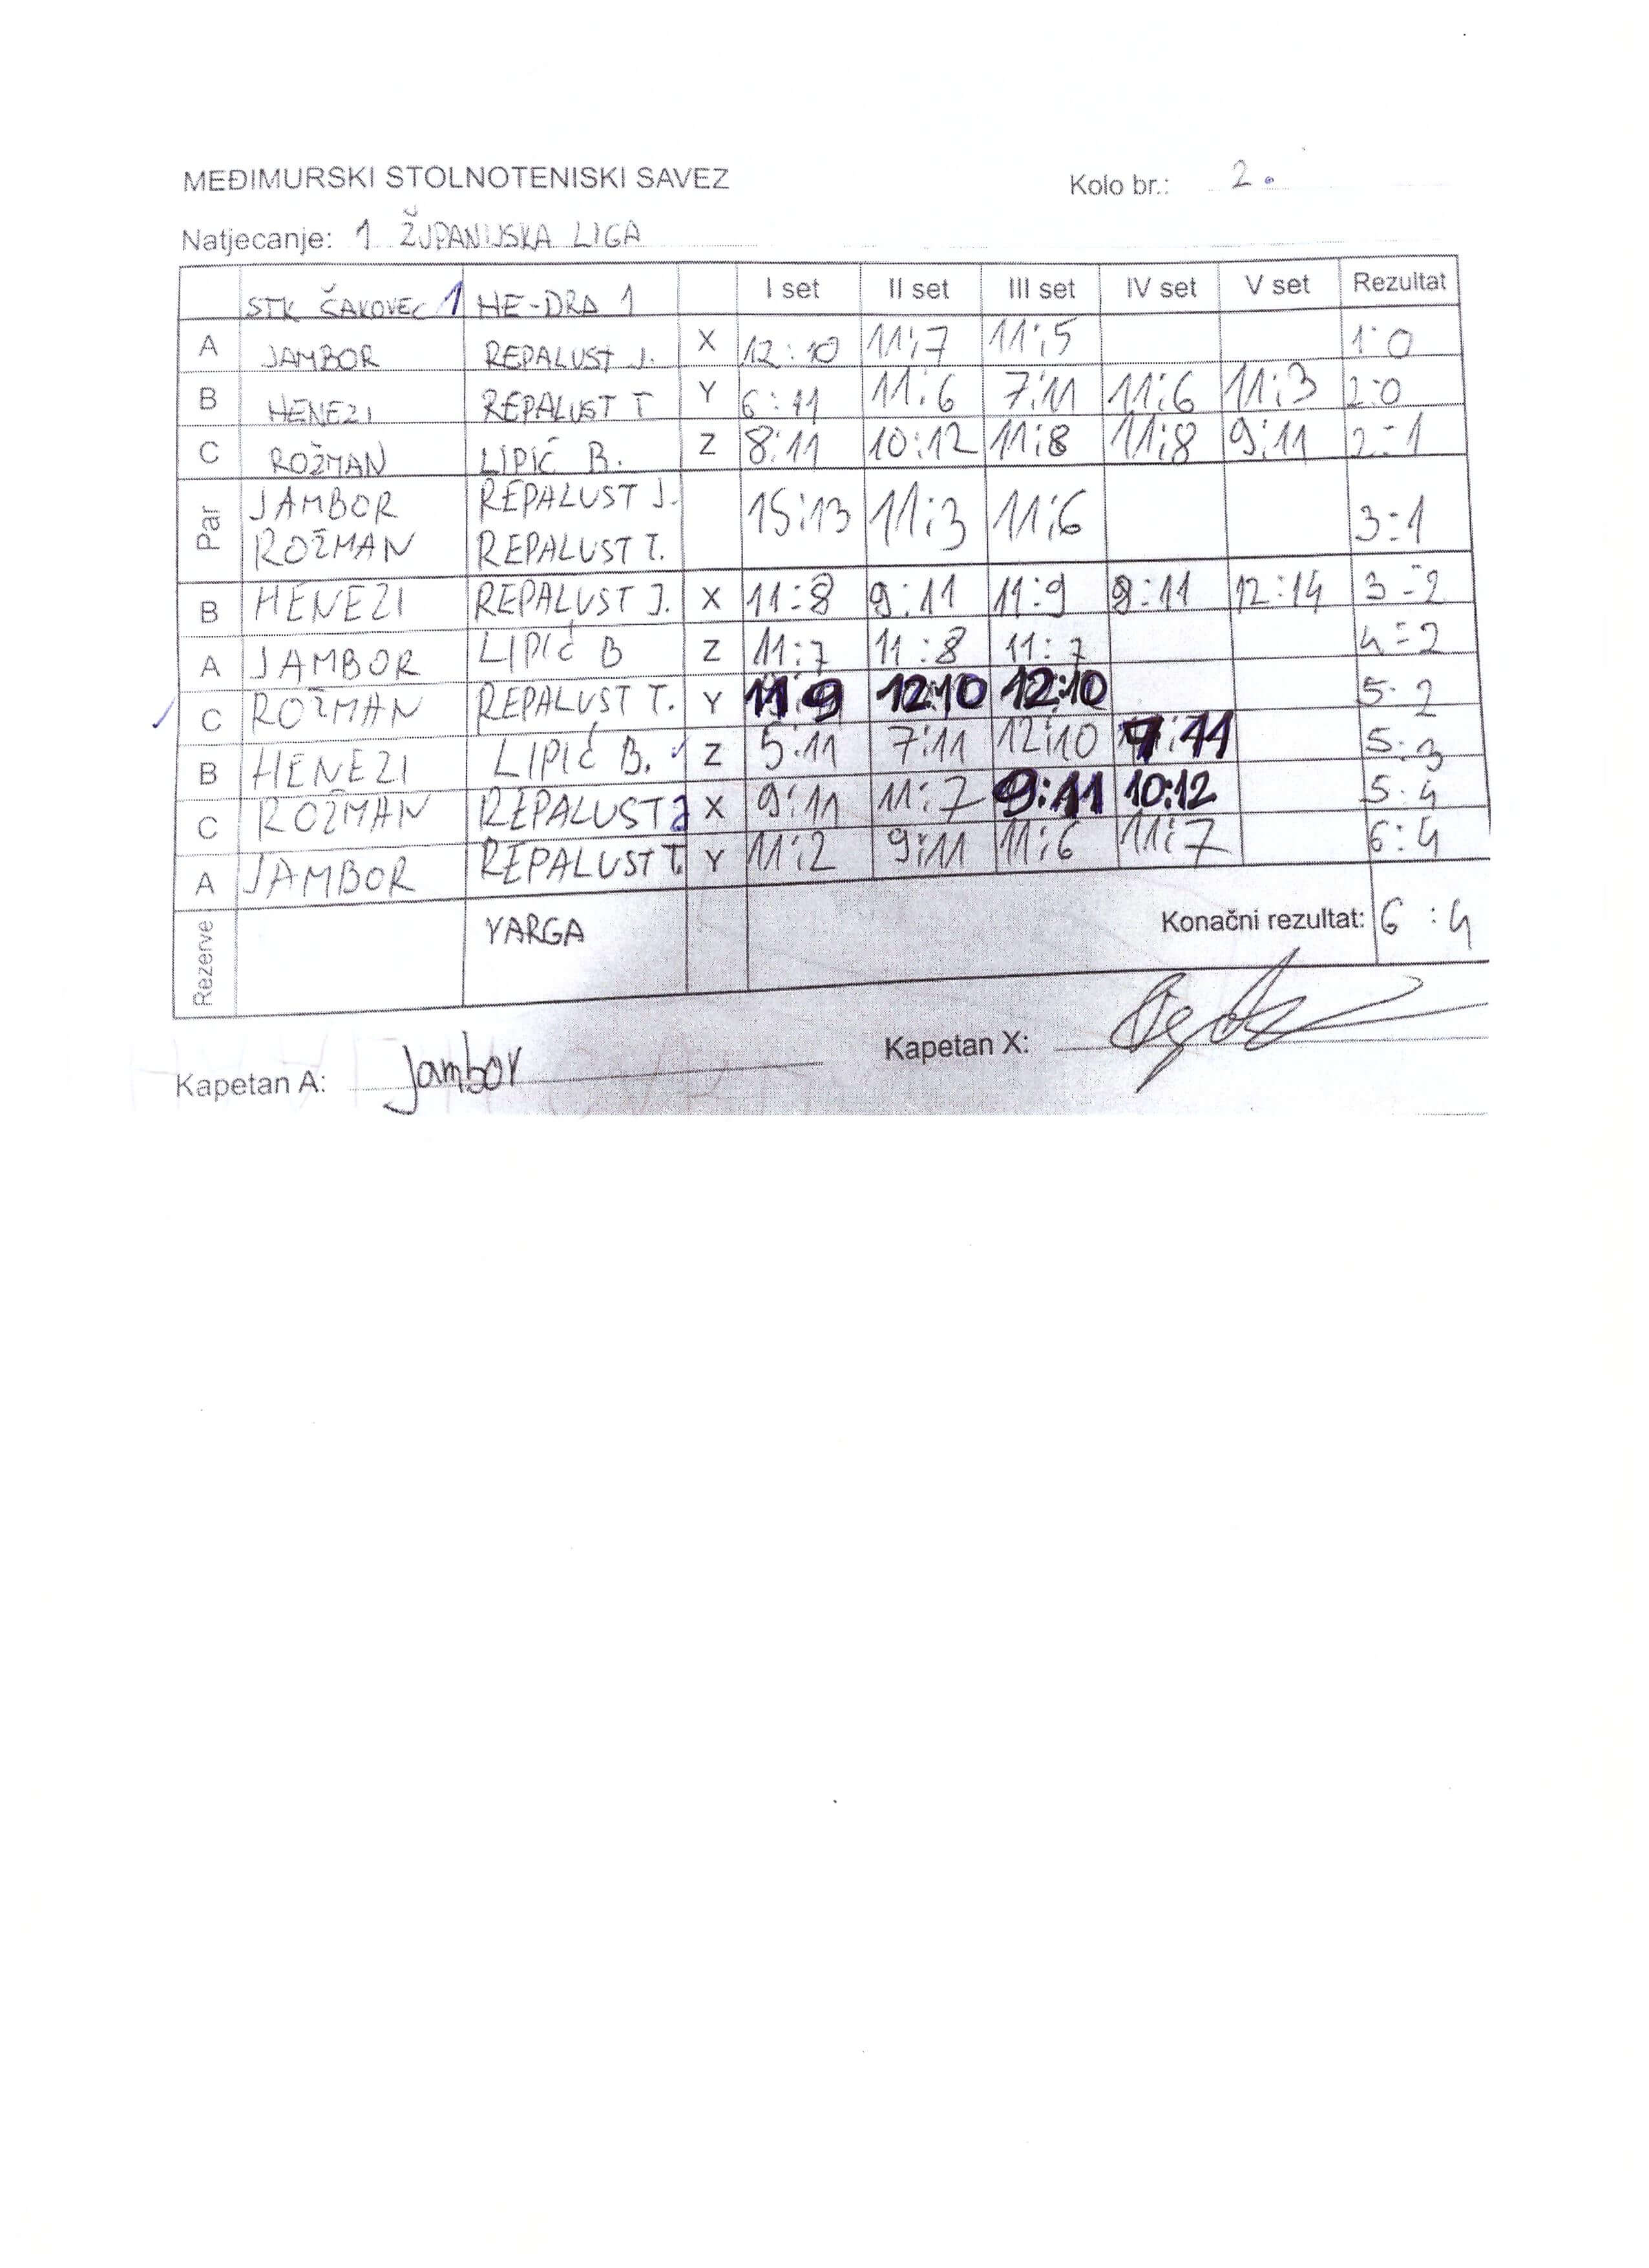 MEĐIMURSKI STOLNOTENISKI SAVEZ Kolo br.: 2.
Natjecanje: 1 ŽUPANIJSKA LIGA
STK ČAKOVEC 1 HE-DRA 1 I set II set III set IV set V set Rezultat
A JAMBOR REPALUST J. X 12:10 11:7 11:5 1:0
B HENEZI REPALUST T Y 6:11 11:6 7:11 11:6 11:3 2:0
C ROŽMAN LIPIĆ B. Z 8:11 10:12 11:8 11:8 9:11 2:1
Par JAMBOR REPALUST J. 15:13 11:3 11:6 3:1
ROŽMAN REPALUST T.
B HENEZI REPALUST J. X 11:8 9:11 11:9 9:11 12:14 3:2
A JAMBOR LIPIĆ B Z 11:7 11:8 11:7 4:2
C ROŽMAN REPALUST T. Y 11:9 12:10 12:10 5:2
B HENEZI LIPIĆ B. Z 5:11 7:11 12:10 7:11 5:3
C ROŽMAN REPALUST J X 9:11 11:7 9:11 10:12 5:4
A JAMBOR REPALUST T. Y 11:2 9:11 11:6 11:7 6:4
Rezerve VARGA Konačni rezultat: 6:4
Kapetan A: Jambor Kapetan X: